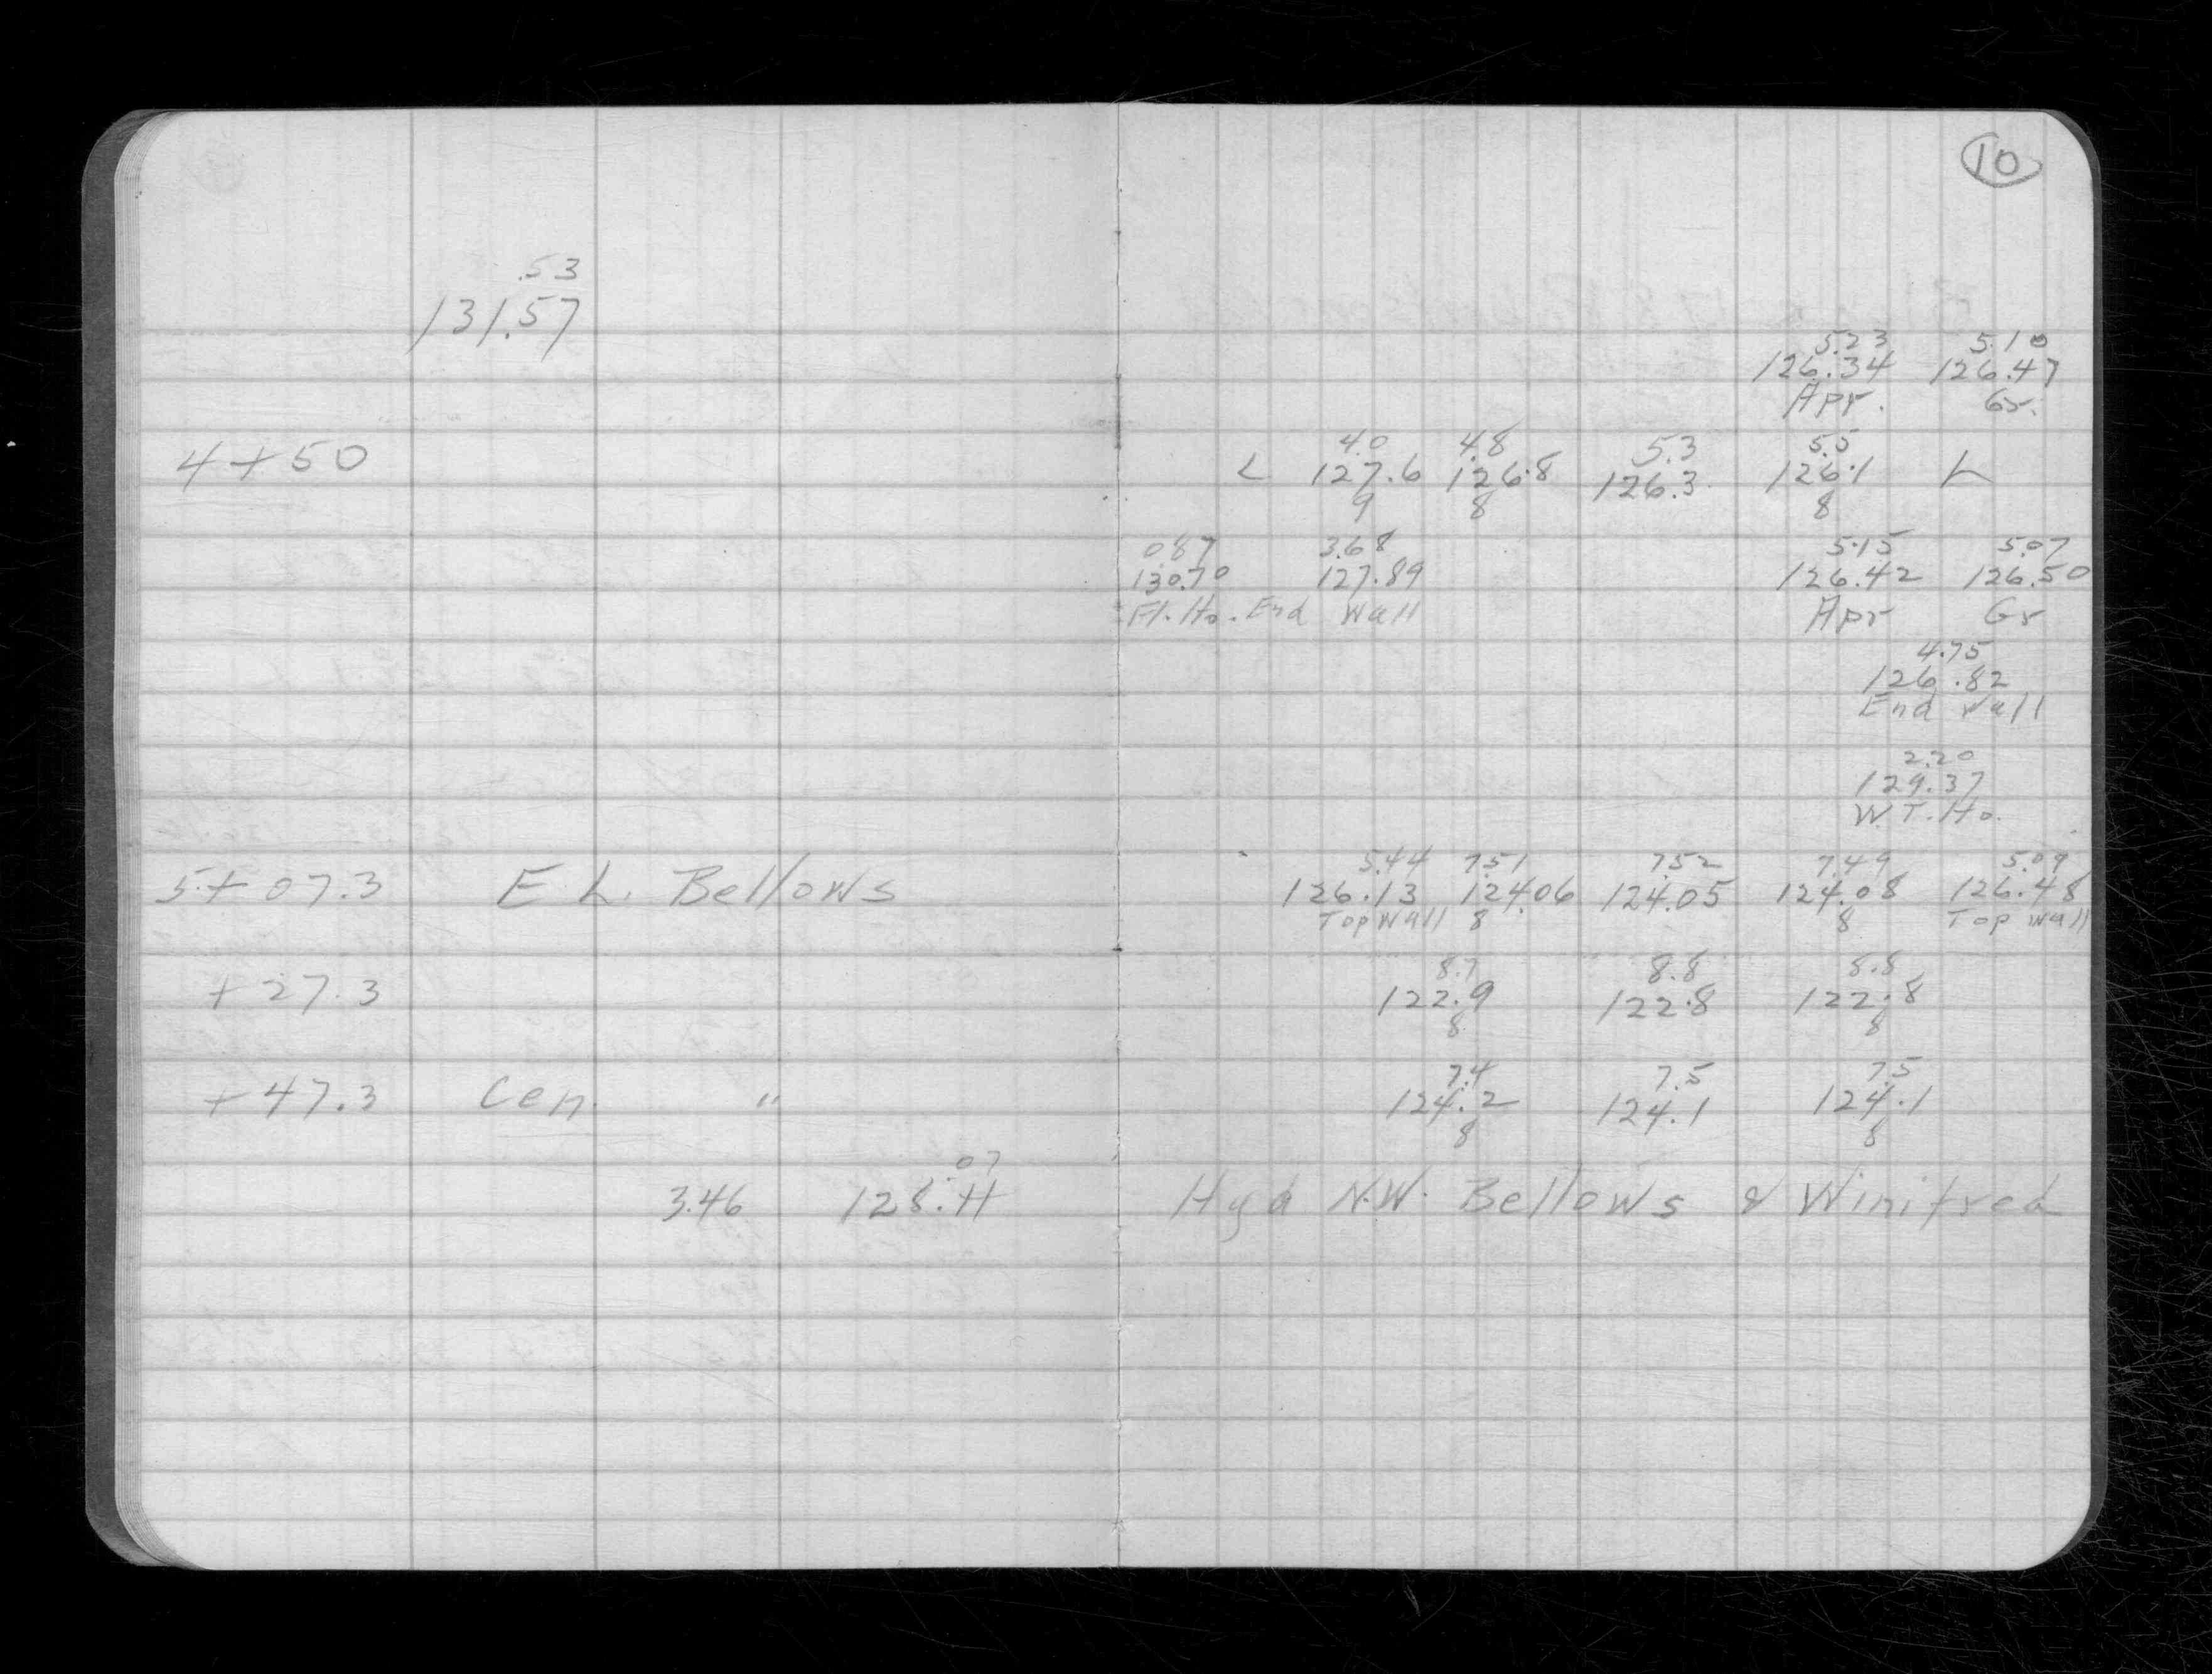 10
.53
131.57
5.23 5.10
126.34 126.47
Apr. Gr.
4.0 4.8 5.3 5.5
4+50 L 127.6 126.8 126.3 126.1 L
9 8 8
0.87 3.68 5.15 5.07
130.70 127.89 126.42 126.50
Fl. Ho. End Wall Apr Gr
4.75
126.82
End Wall
2.20
129.37
W.T. Ho.
5.44 7.51 7.52 7.49 5.09
5+07.3 E L. Bellows 126.13 124.06 124.05 124.08 126.48
Top Wall 8 8 Top Wall
8.7 8.8 8.8
+27.3 122.9 122.8 122.8
8 8
7.4 7.5 7.5
+47.3 Cen. " 124.2 124.1 124.1
8 8
.07
3.46 128.11 Hyd N.W. Bellows & Winifred